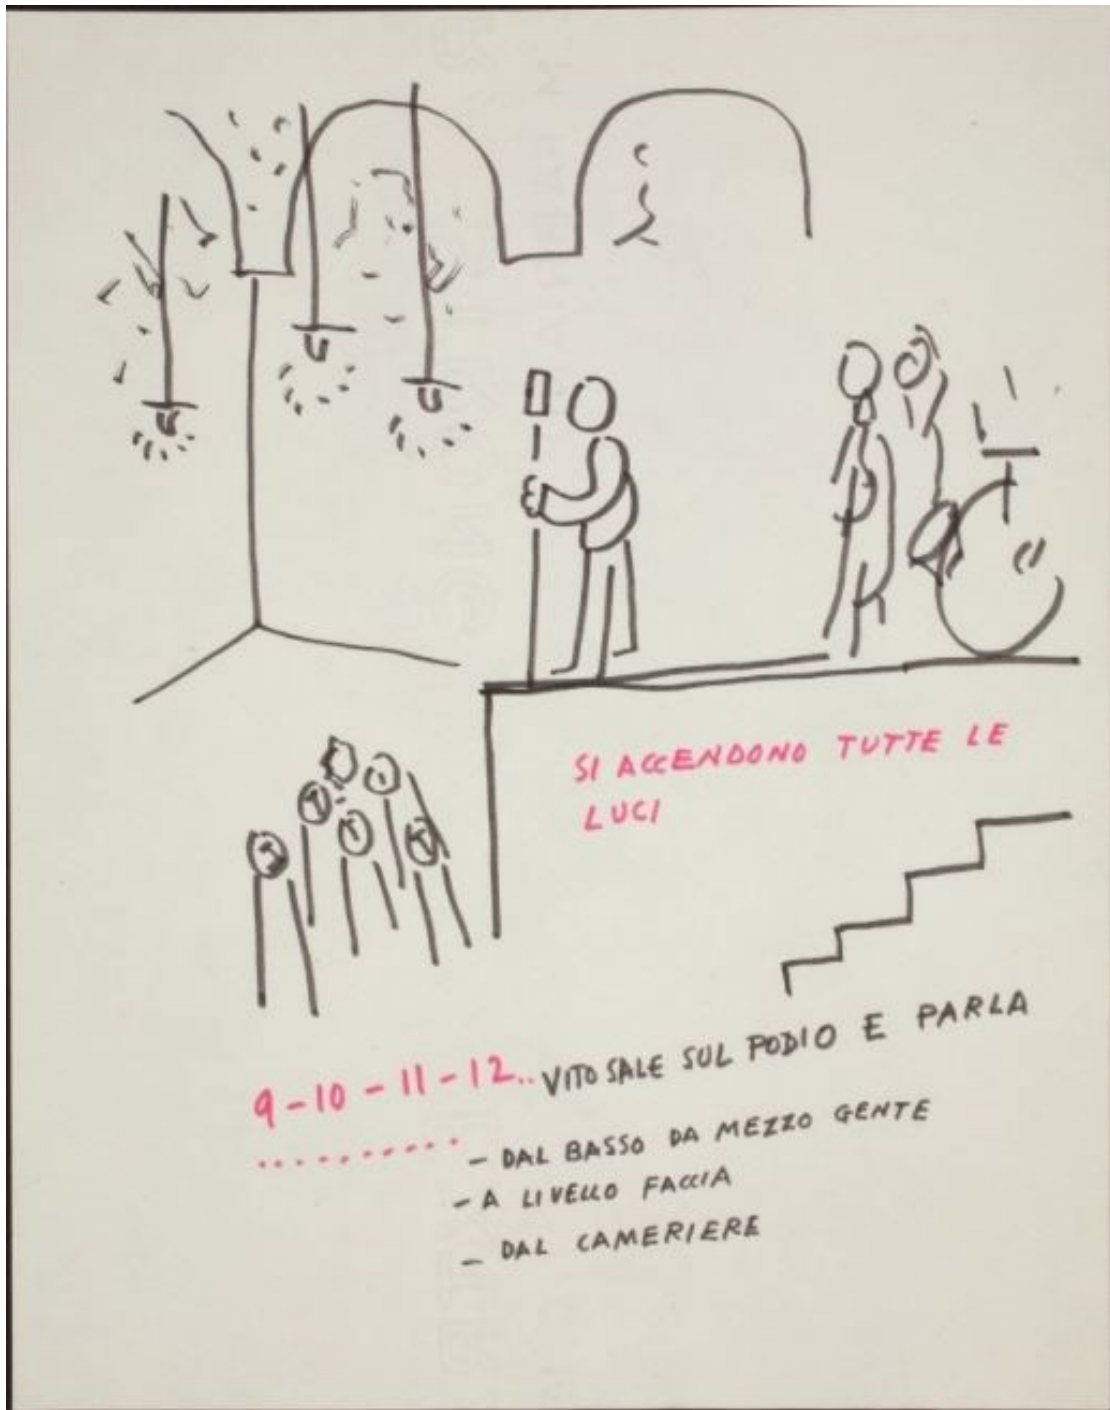 SI ACCENDONO TUTTE LE
LUCI
9-10-11-12.. VITO SALE SUL PODIO E PARLA
.......... - DAL BASSO DA MEZZO GENTE
- A LIVELLO FACCIA
- DAL CAMERIERE